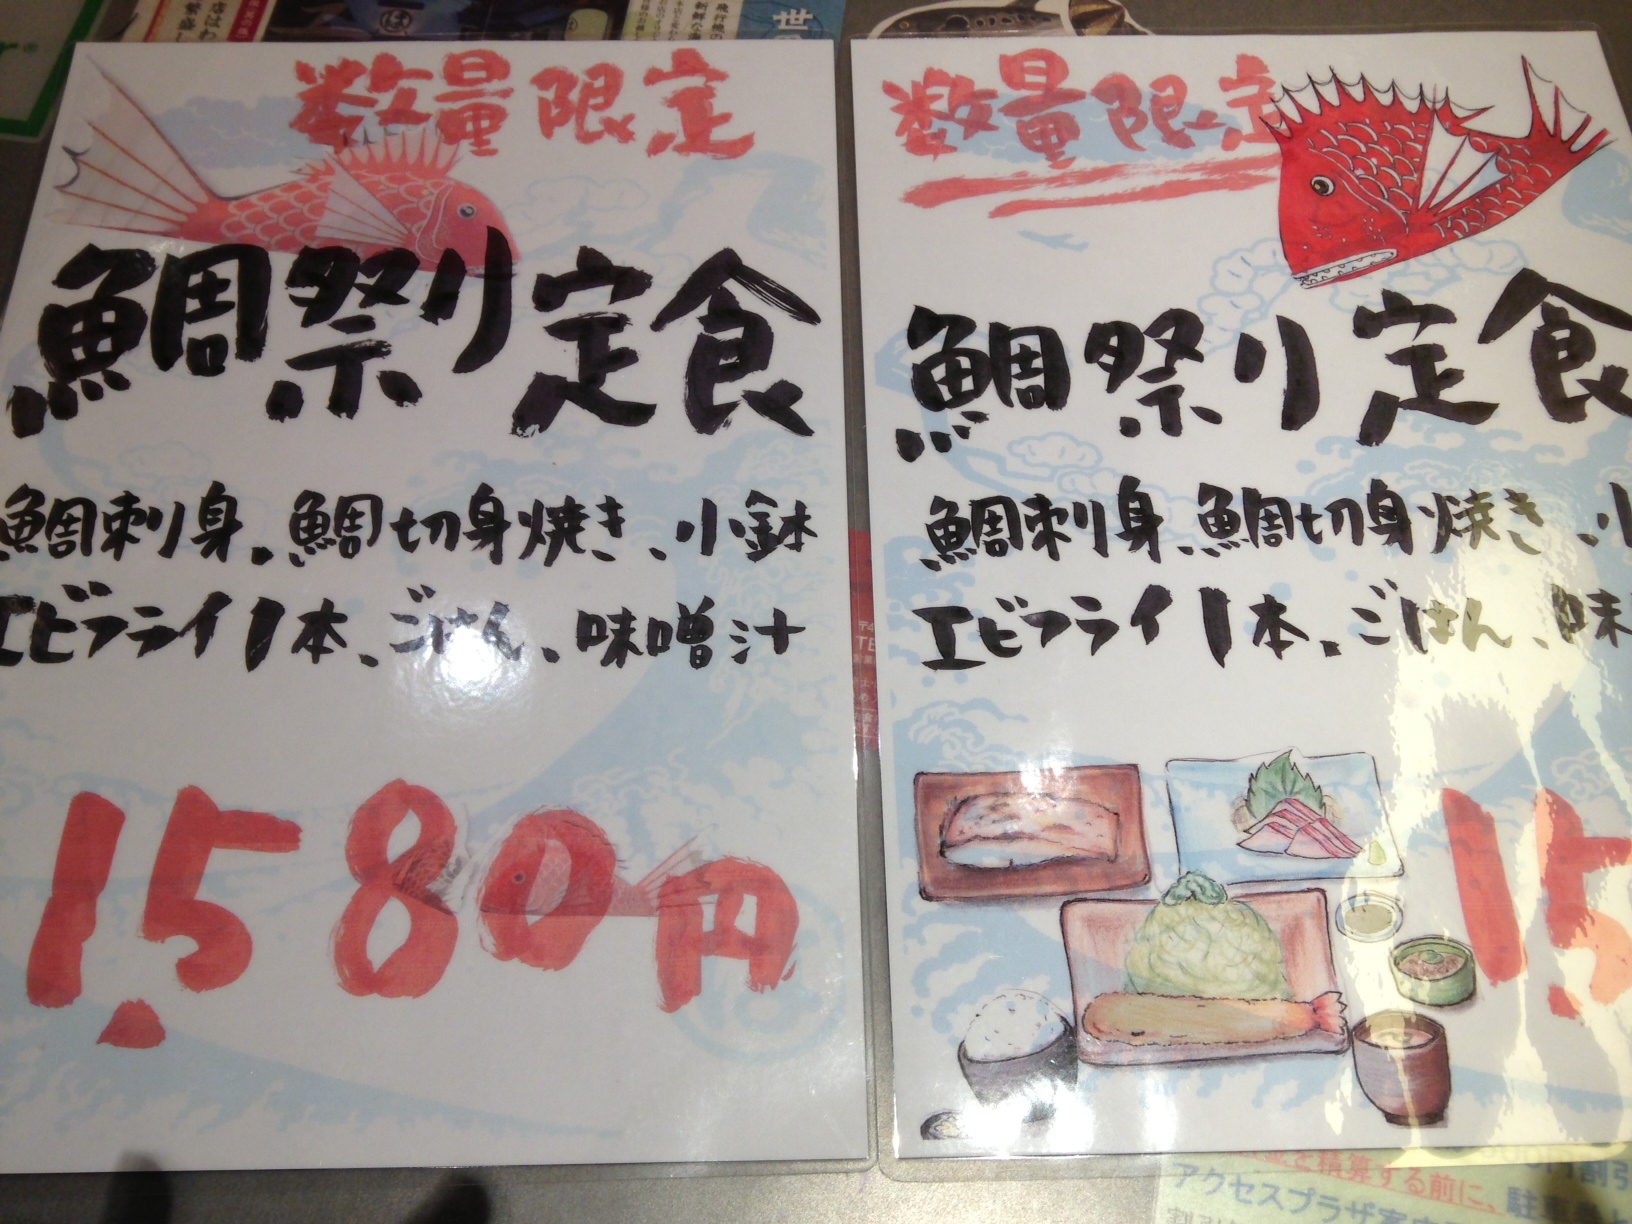 数量限定
鯛祭り定食
鯛刺り身、鯛切身焼き、小鉢
エビフライ1本、ごはん、味噌汁
1,580円
数量限定
鯛祭り定食
鯛刺り身、鯛切身焼き、小
エビフライ1本、ごはん、味
15
を精算する前に、駐車
アクセスプラザ案